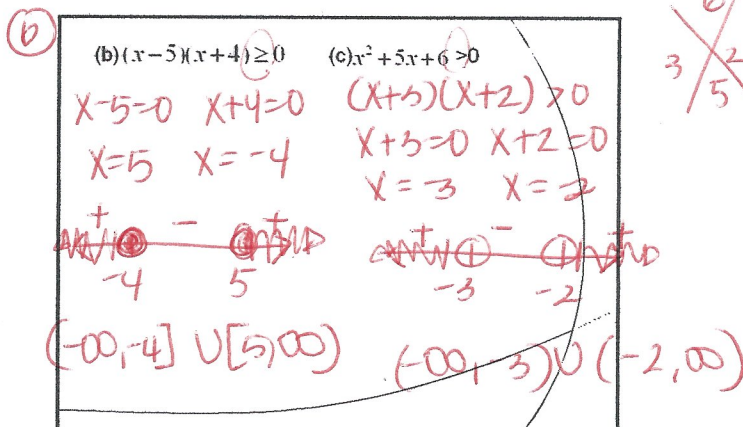 b
6
3 2
5
(b) (x-5)(x+4) ≥ 0
x-5=0 x+4=0
x=5 x=-4
+ - +
-4 5
(-∞,-4] ∪ [5,∞)
(c) x² + 5x + 6 > 0
(x+3)(x+2) > 0
x+3=0 x+2=0
x=-3 x=-2
+ - +
-3 -2
(-∞,-3) ∪ (-2,∞)